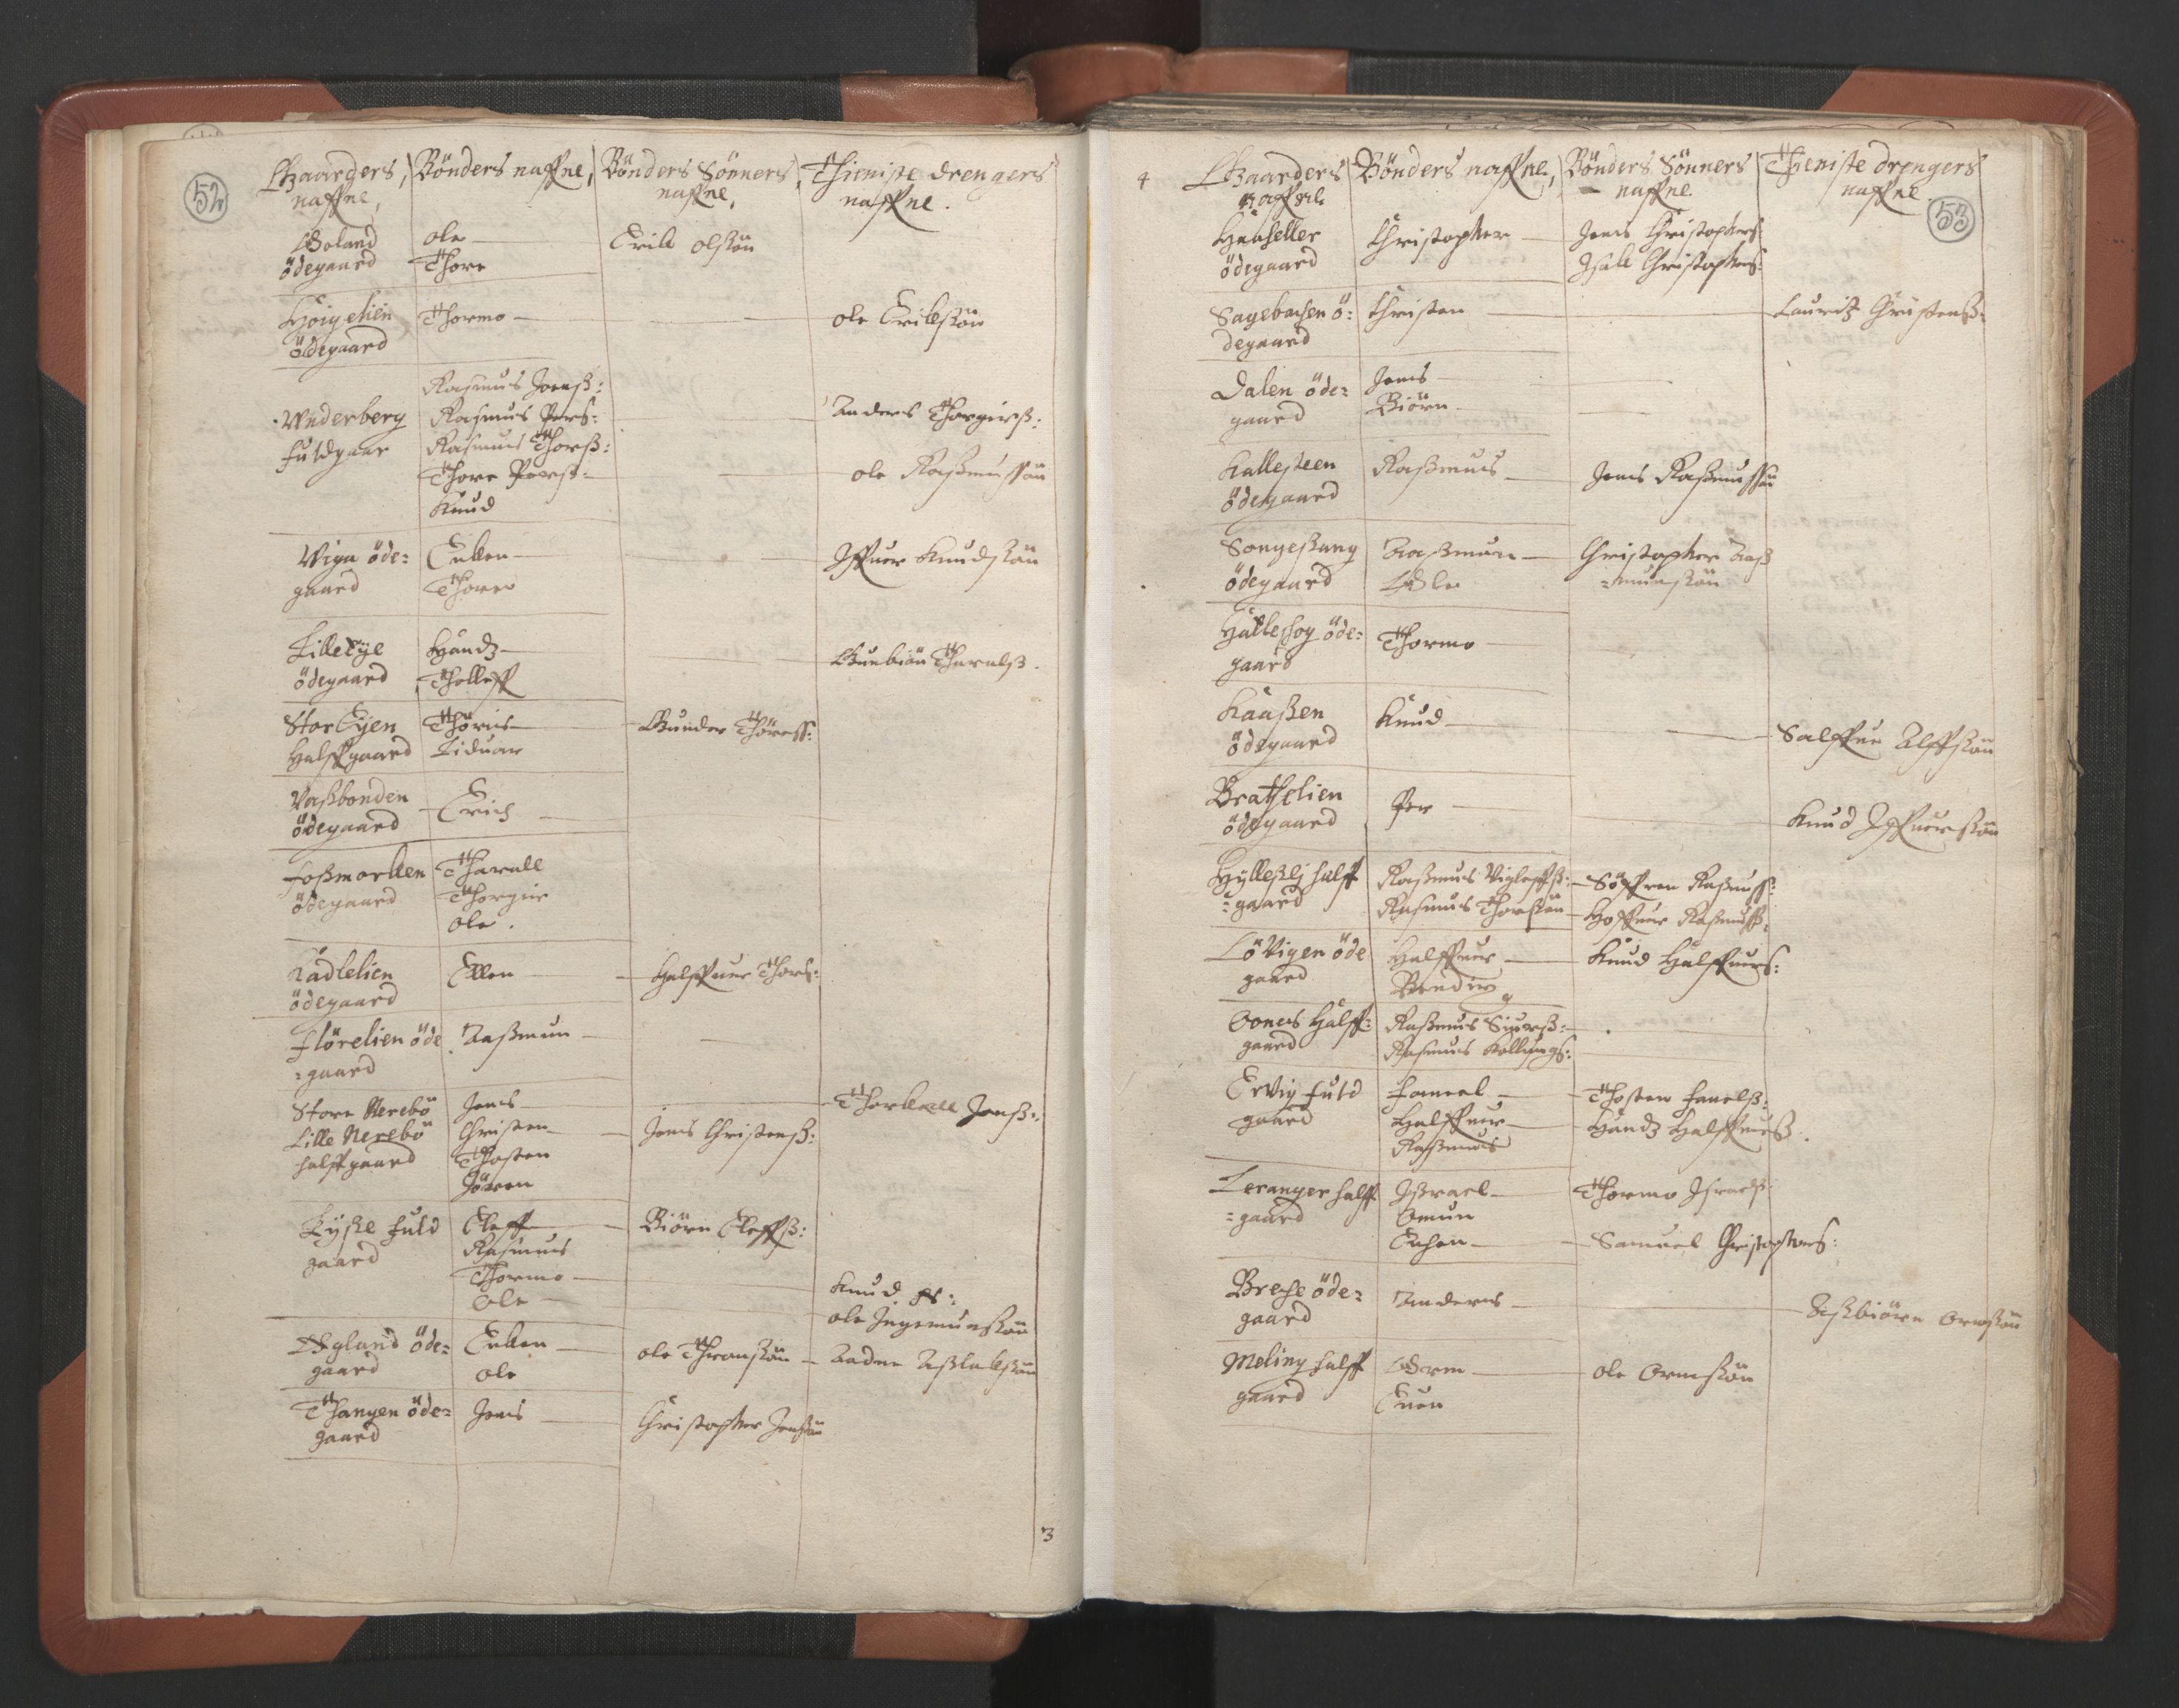 52
Gaarders naffne, Bönders naffne, Bönders Sönners naffne, Thieniste drengers naffne.
Goland ödegaard
Ole
Thore
Erik Olsön
Höigelien ödegaard
Thormo
Ole Eriksön
Wnderberg fuldgaar
Rasmus Jonß:
Rasmus Pers:
Rasmus Thorß:
Thore Perß:
Knud
Anders Thorgirß:
Ole Raßmussön
Wiga öde=
gaard
Enken
Thore
Iffuer Knudsön
Lille Eye
ödegaard
Handz
Tholleff
Gunbiön Tharalß.
Stor Eyen
Halffgaard
Thöris
Liduar
Gunder Thöress:
Vaßbonden
ödegaard
Erich
Foßmarken
ödegaard
Tharald
Thorgier
Ole.
Kadlelien
ödegaard
Ellen
Halffuer Thors:
Flörelien öde
=gaard
Aaßmun
Store Nerebö
Lille Nerebö
halffgaard
Jens
Christen
Thosten
Jören
Jens Christenß:
Thorkield Jenß:
Lyske fuld
gaard
Eleff
Rasmus
Thormo
Ole
Biörn Eleffß:
Knud
Ole Ingemunsön
Øgland öde=
gaard
Enken
Ole
Ole Thronsön
Aadne Aßlaksön
Thangen öde=
gaard
Jens
Christopher Jensön
3
4
53
Gaarders naffne
Bönders naffne,
Bönders Sönners naffne
Thieniste drengers naffne
Hanheller
ödegaard
Christopher
Jens Christophers:
Isak Christophers:
Sagebachen ö:
degaard
Christen
Lauritz Christenß:
Dalen öde=
gaard
Jens
Biörn
Kallesteen
ödegaard
Raßmus
Jens Raßmussön
Songesang
ödegaard
Aaßmun
Ole
Christopher Aaß
=munsön
Halleshog öde=
gaard
Thormo
Kaaßen
ödegaard
Knud
Salffue Alffsön
Brathelien
ödegaard
Per
Knud Iffuersön
Hylleßlj halff
=gaard
Raßmus Vigleffß:
Rasmus Thorsön
Söffren Raßmuß:
Hoffuer Rasmusß:
Lövigen öde
gaard
Halffuer
Bending
Knud Halffuers:
Oones Halff=
gaard
Raßmus Siurß:
Rasmus Kollungs:
Ervig fuld
gaard
Fameel
Halffuer
Raßmus
Thosten Famelß:
Handz Halffuerß.
Leranger halff
=gaard
Ißrael
Omun
Enken
Thormo Israelß:
Samuel Christophers:
Breche öde=
gaard
Anders
Aßbiörn Ormsön
Meling halff
gaard
Orm
Euen
Ole Ormsön